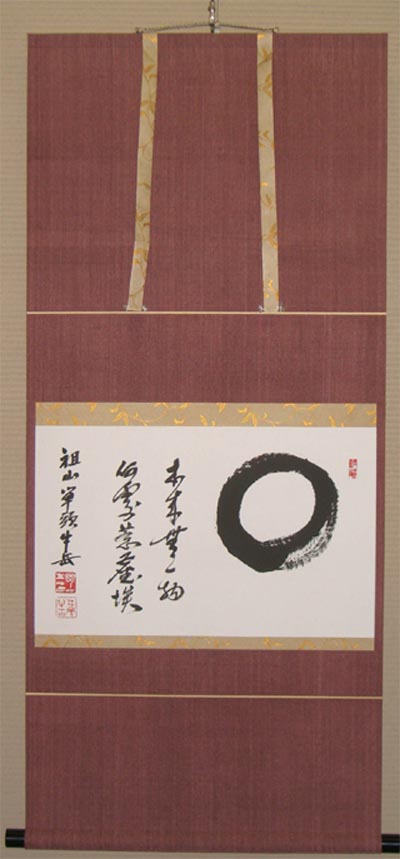 本来無一物
何處惹塵埃
祖山単頭牛岳